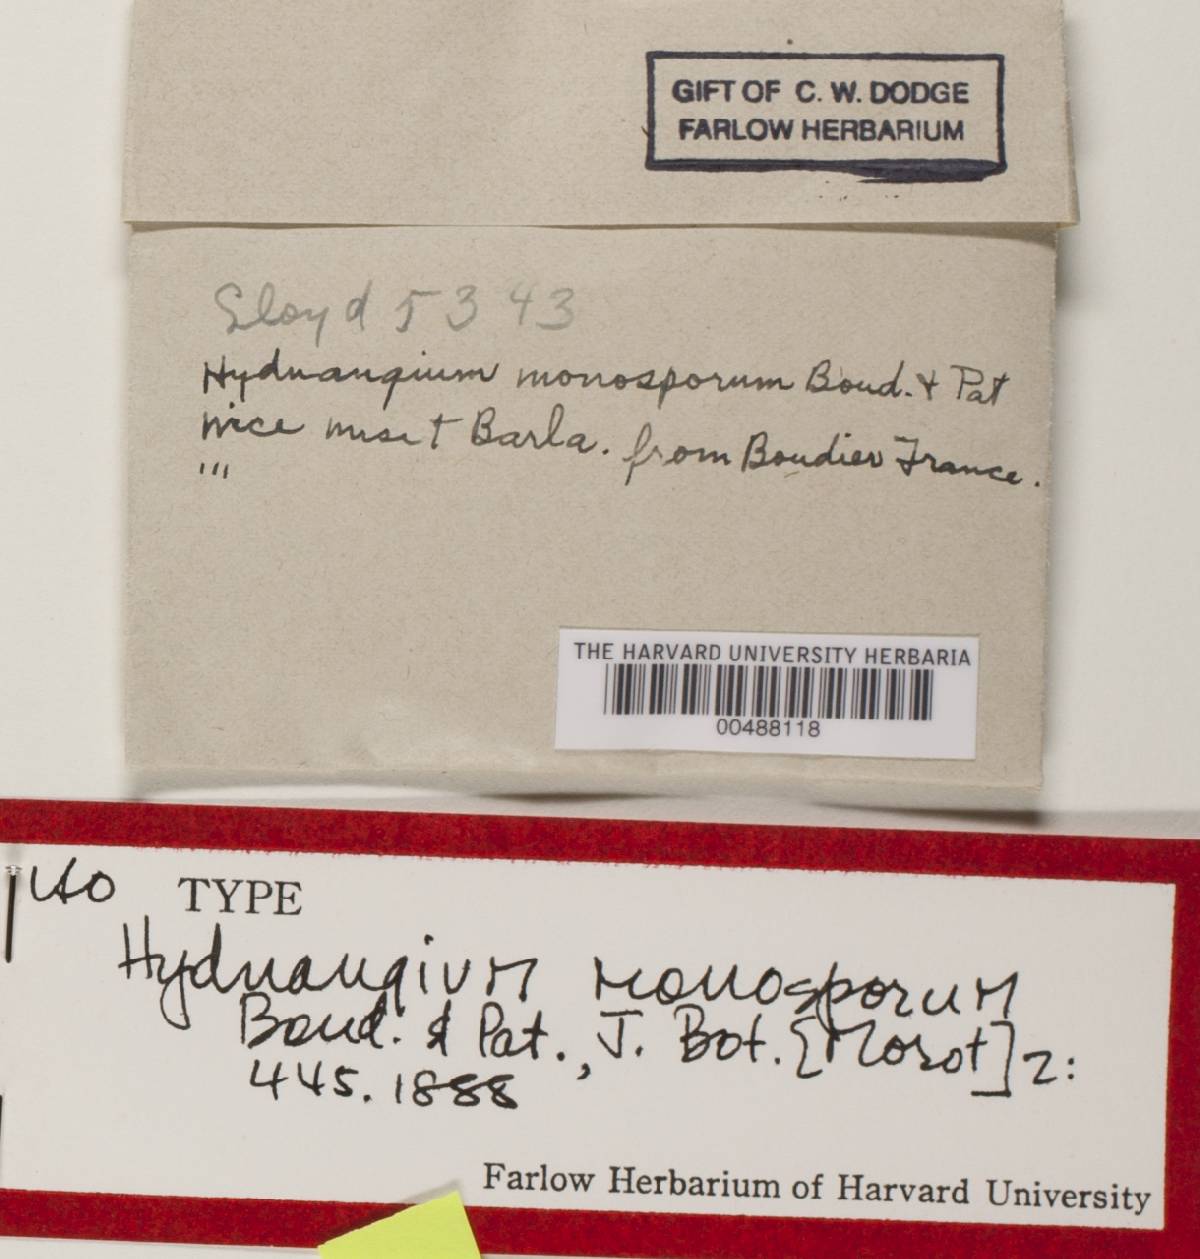 GIFT OF C. W. DODGE
FARLOW HERBARIUM
Lloyd 5343
Hydnangium monosporum Boud. & Pat
Nice misit Barla. from Boudier France.
'''
THE HARVARD UNIVERSITY HERBARIA
00488118
TYPE
Hydnangium monosporum
Boud. & Pat., J. Bot. [Morot] 2:
445. 1888
Farlow Herbarium of Harvard University